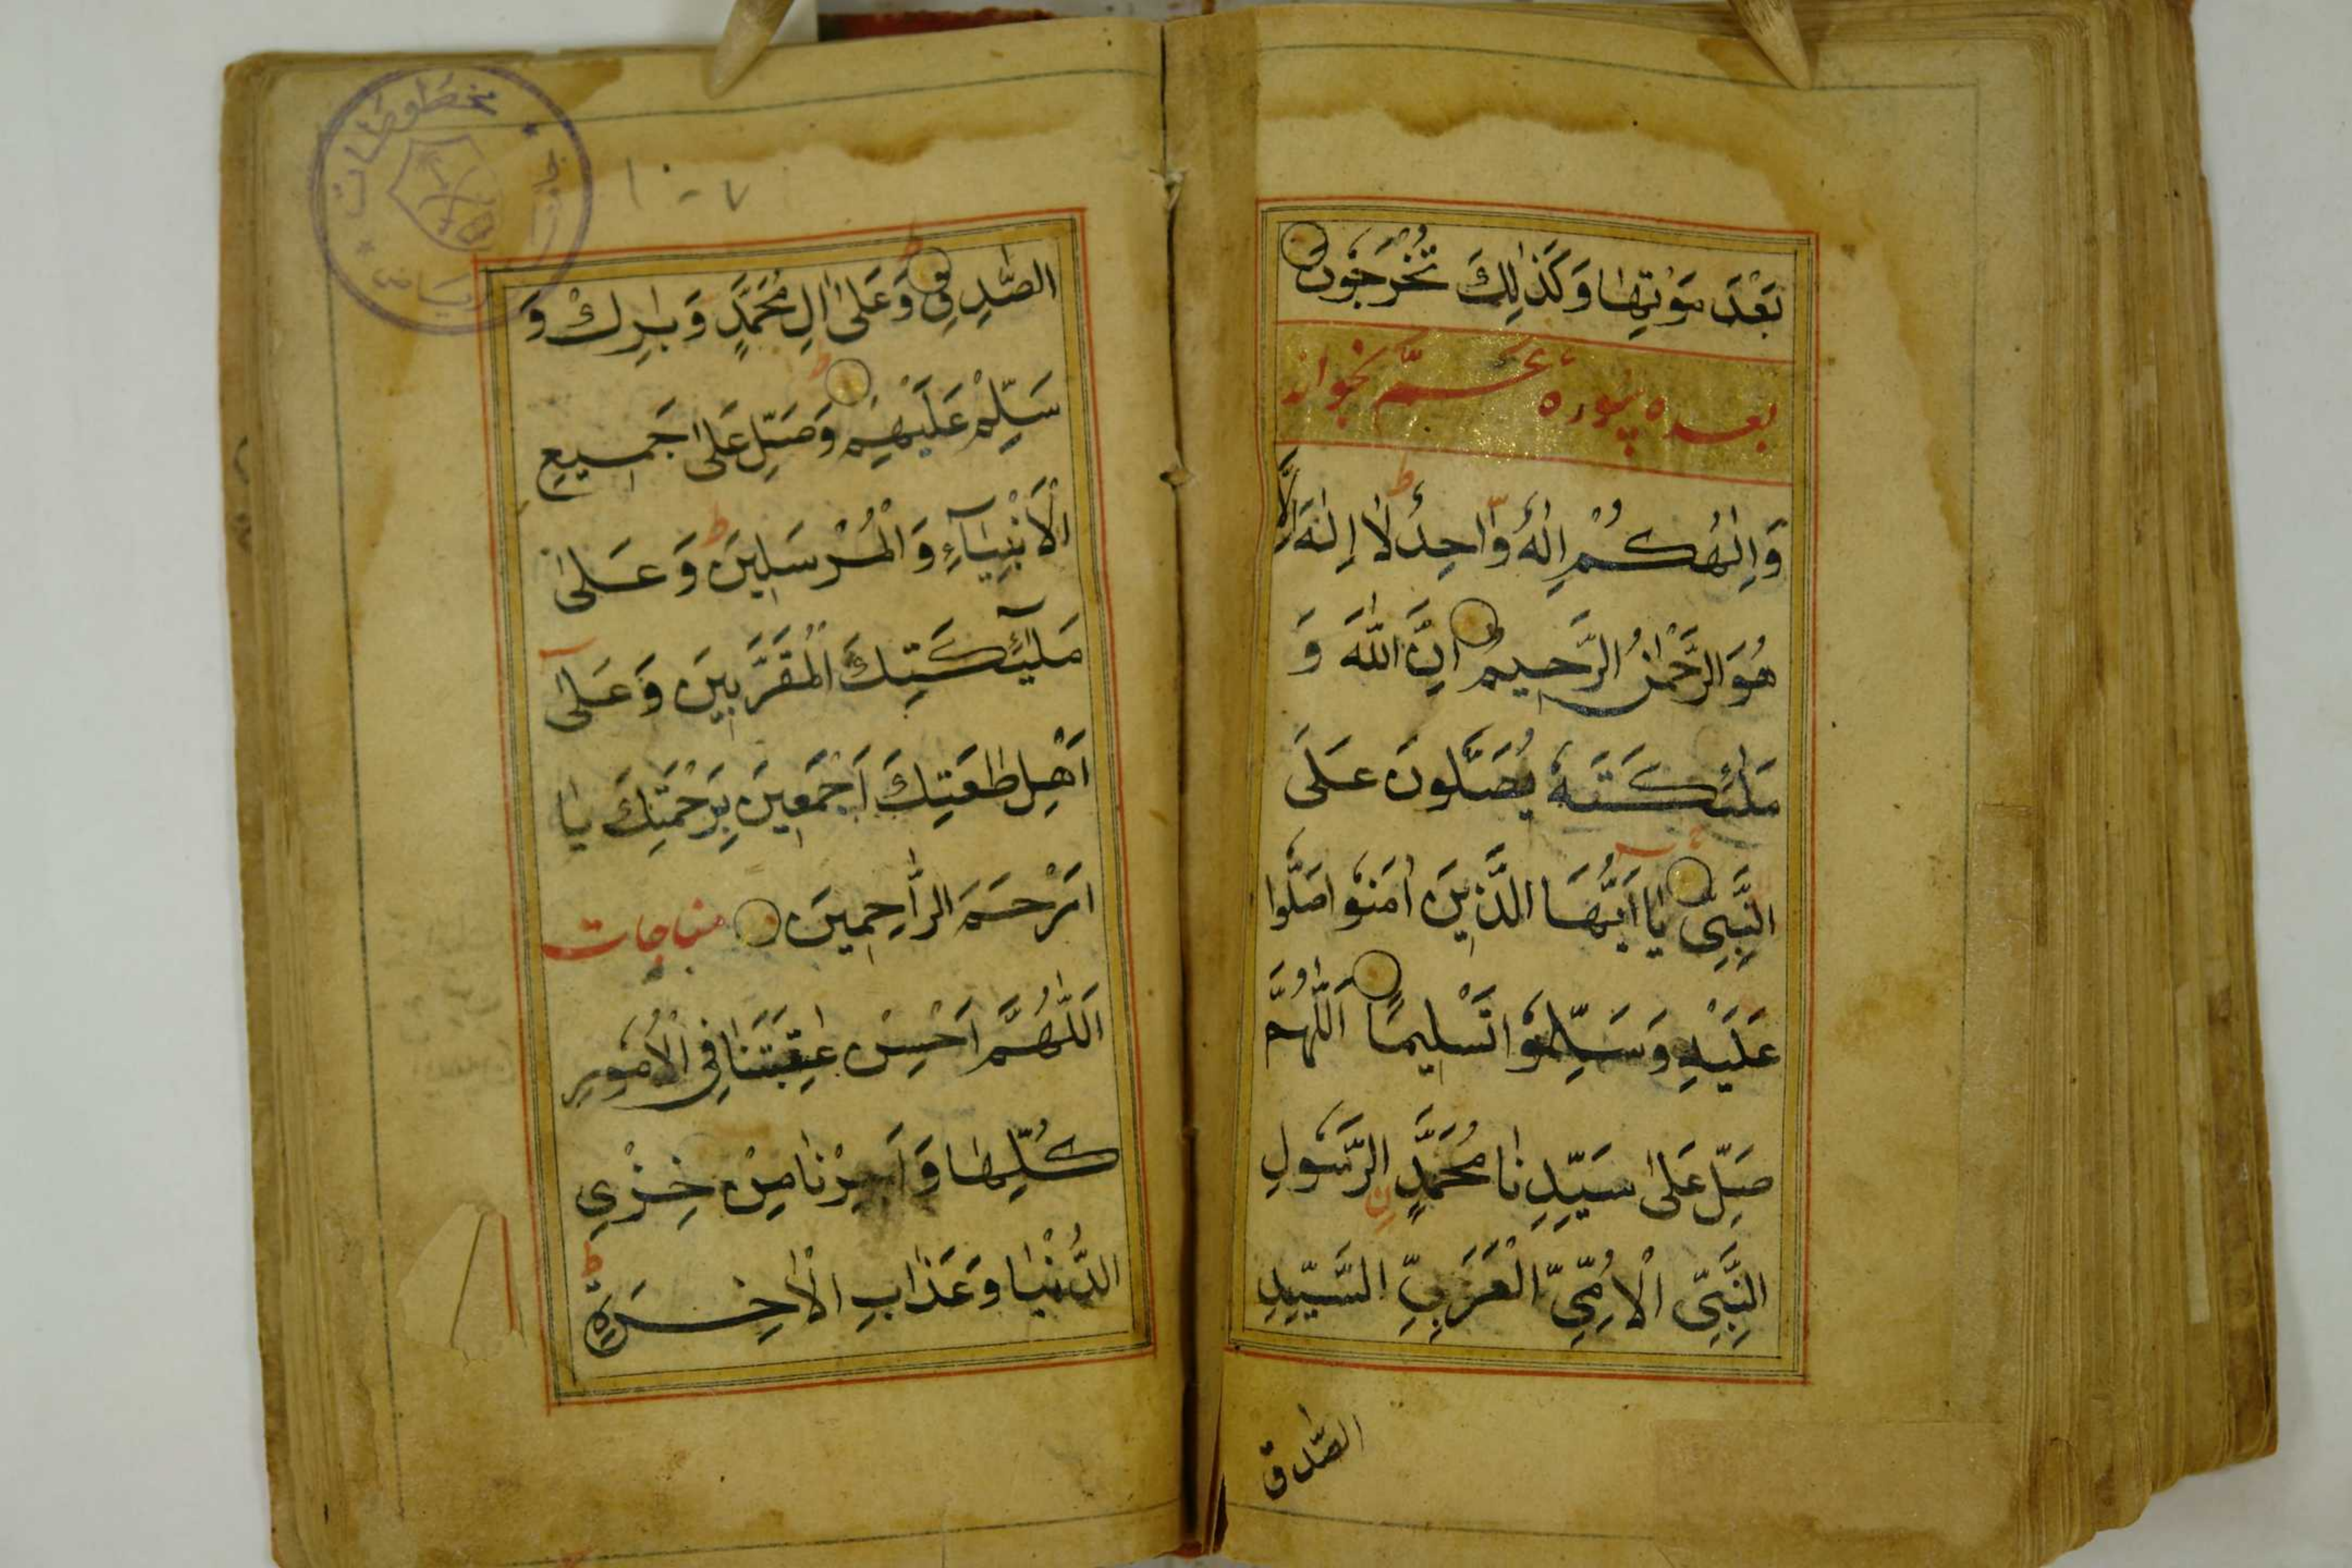 بَعْدَ مَوْتِهَا وَكَذٰلِكَ تُخْرَجُونَ
بعده سوره عم بخواند
وَاِلٰهُكُمْ اِلٰهٌ وَّاحِدٌ لَا اِلٰهَ اِلَّا
هُوَ الرَّحْمٰنُ الرَّحِيمُ اِنَّ اللّٰهَ وَ
مَلٰئِكَتَهُ يُصَلُّونَ عَلَى
النَّبِيِّ يَا اَيُّهَا الَّذِينَ اٰمَنُوا صَلُّوا
عَلَيْهِ وَسَلِّمُوا تَسْلِيمًا اَللّٰهُمَّ
صَلِّ عَلٰى سَيِّدِنَا مُحَمَّدٍ الرَّسُولِ
النَّبِيِّ الْاُمِّيِّ الْعَرَبِيِّ السَّيِّدِ
الصّٰدق
مخطوطات
رياض
١٠٠٧
الصّٰدِقِ وَعَلٰى اٰلِ مُحَمَّدٍ وَبٰرِكْ وَ
سَلِّمْ عَلَيْهِمْ وَصَلِّ عَلٰى جَمِيعِ
الْاَنْبِيَآءِ وَالْمُرْسَلِينَ وَعَلٰى
مَلٰٓئِكَتِكَ الْمُقَرَّبِينَ وَعَلٰٓى
اَهْلِ طٰعَتِكَ اَجْمَعِينَ بِرَحْمَتِكَ يَا
اَرْحَمَ الرّٰحِمِينَ مناجات
اَللّٰهُمَّ اَحْسِنْ عٰقِبَتَنَا فِي الْاُمُورِ
كُلِّهَا وَاَجِرْنَا مِنْ خِزْيِ
الدُّنْيَا وَعَذَابِ الْاٰخِرَةِ